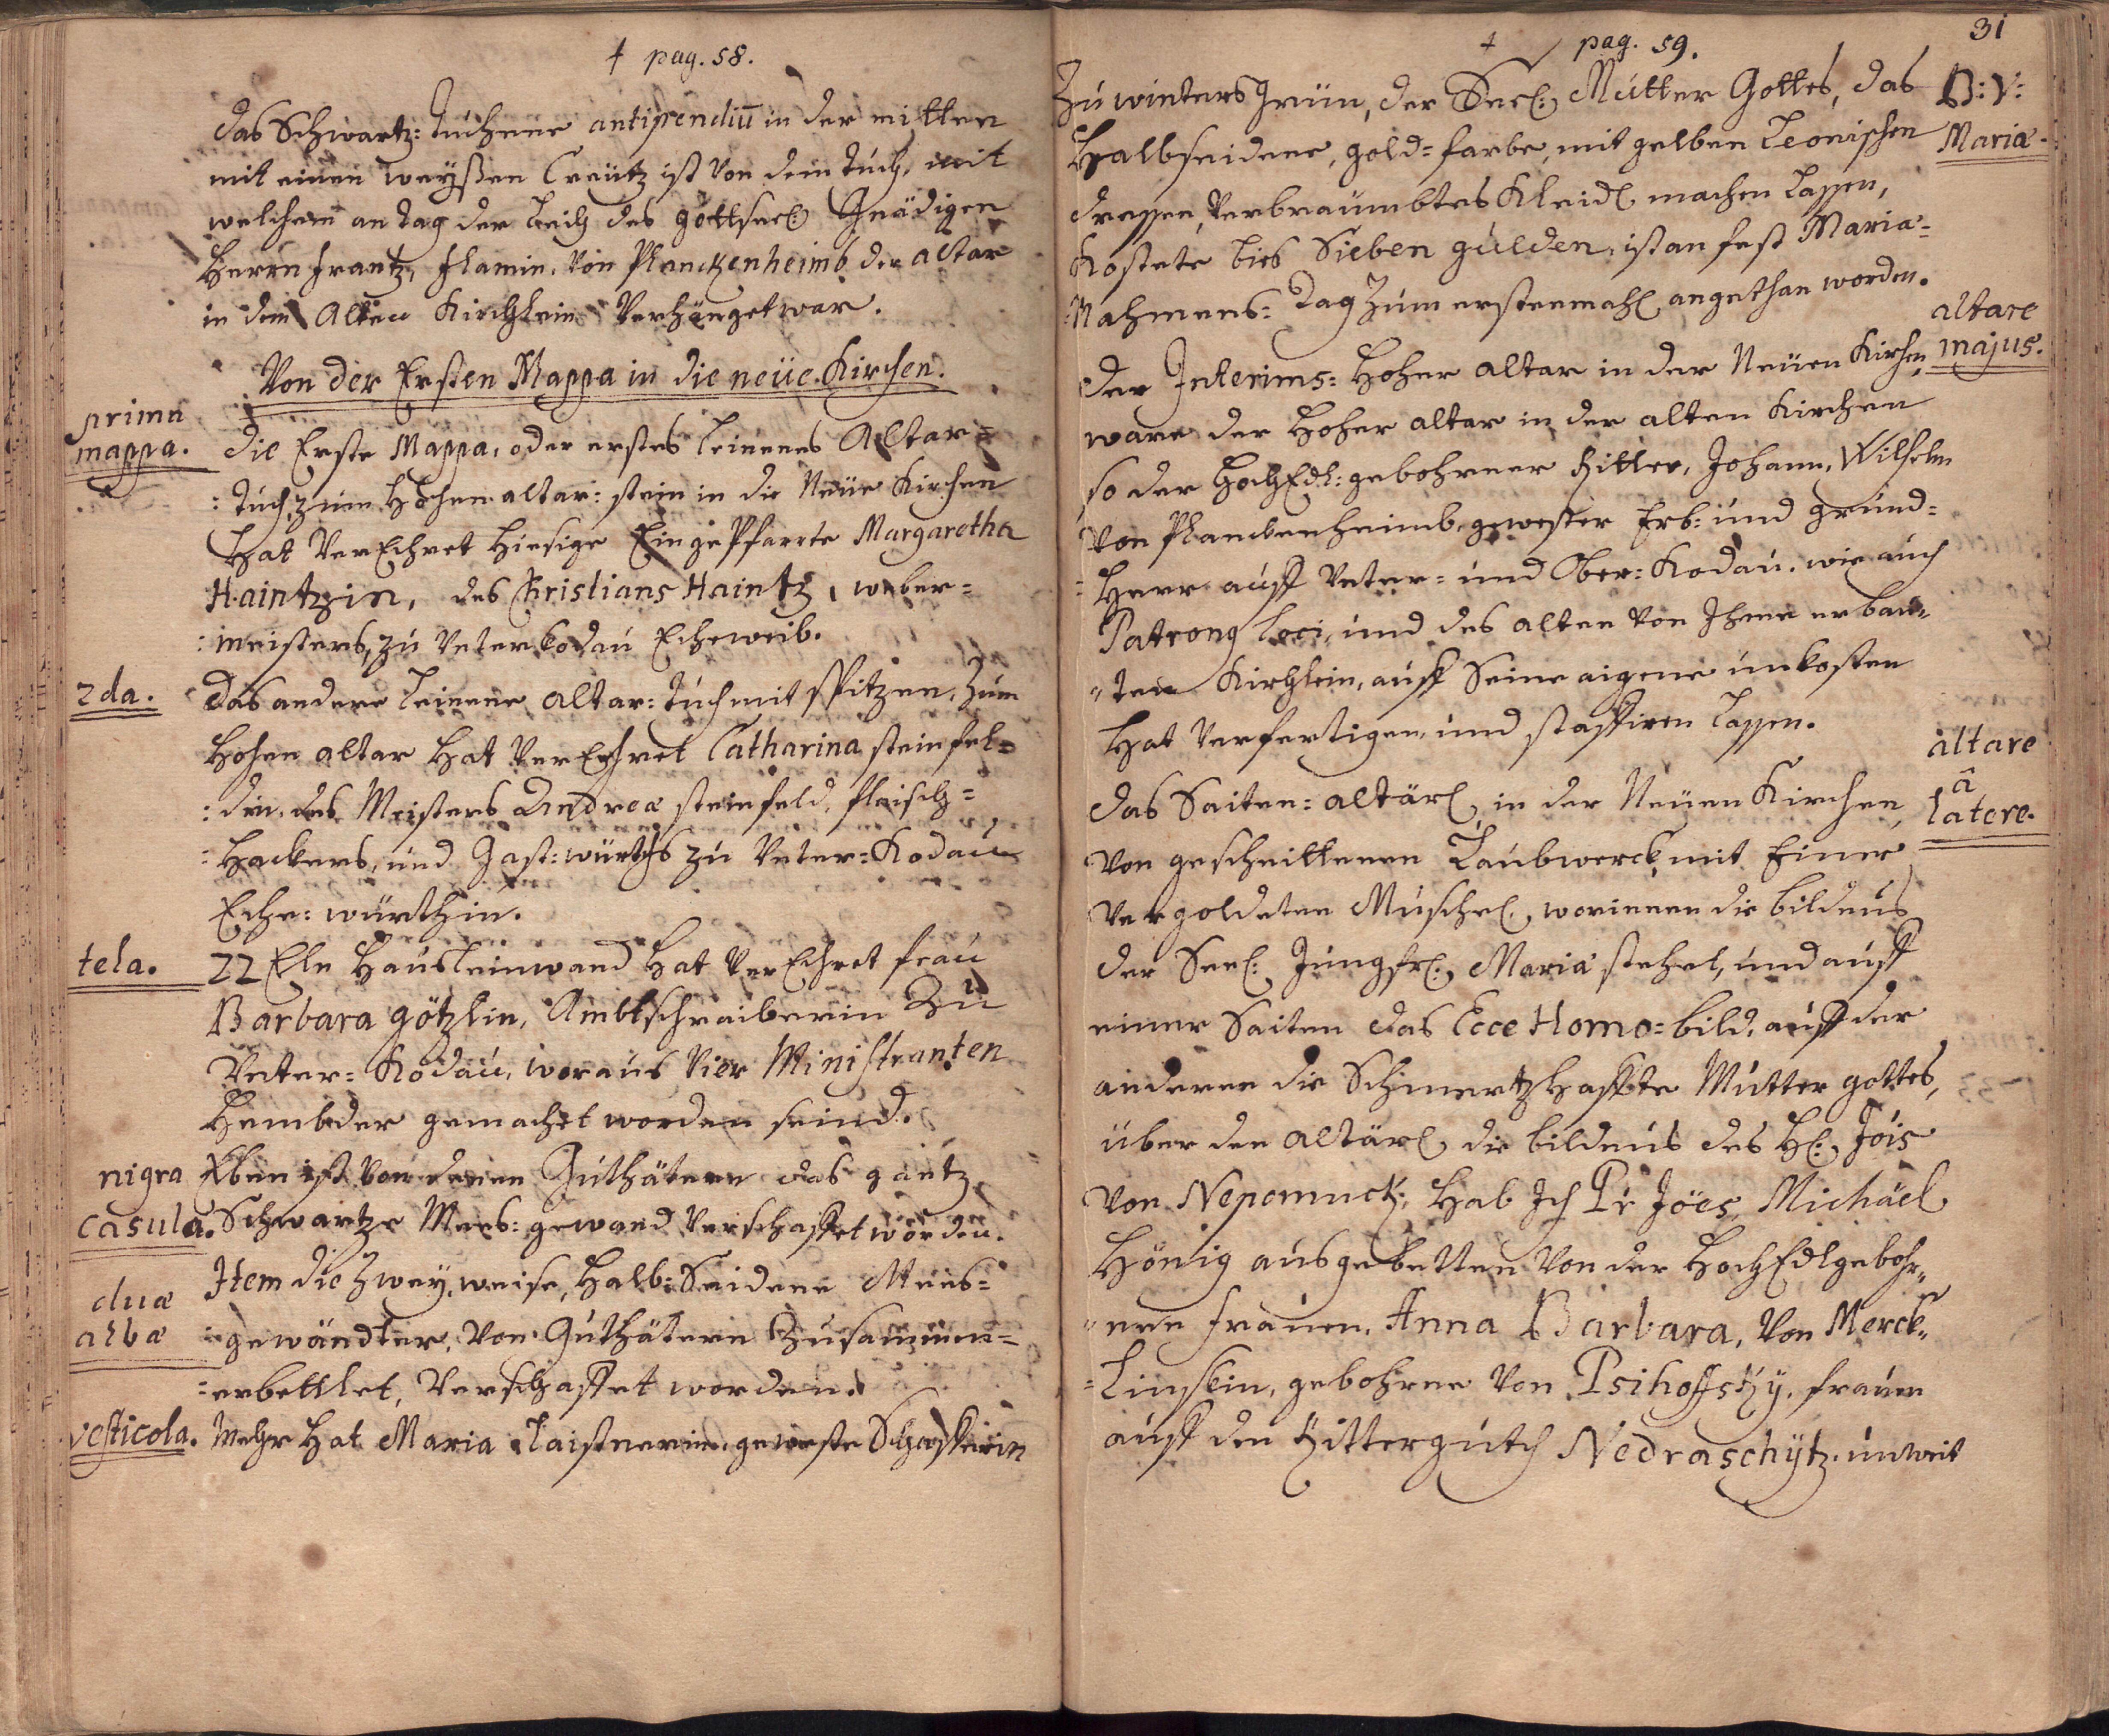 † pag. 58.
das Schwartz: Tuchene antipendiū in der mitten
mit einen weyßen Creütz ist von dem Tuch, mit
welchem an tag der Leich des gottseel: Gnädigen
Herrn Frantz, Flamin. von Planckenheimb der altar
in dem Alten Kirchlein verhänget war.
Von der Ersten Mappa in die neüe Kirchen.
prima
mappa.
die Erste Mappa, oder erstes leinenes Altar=
:tuch, zum Hohen altar: stein in die Neüe Kirchen
Hat verEhret hiesige Eingepfarrte Margaretha
Haintzin, des Christians Haintz, weber=
:meisters, zu Unterkodau Eheweib.
2da.
das andere leinene altar: tuch mit Spitzen, zum
Hohen altar Hat verEhret Catharina steinfel=
:din, des Meisters Andreæ steinfeld, fleisch=
:hackers, und Gast: würths zu Unter: Kodau
Ehe: würthin.
tela.
22 Eln Hausleinwand Hat verEhret frau
Barbara götzlin, Ambtschreiberin Zu
Unter= Kodau, woraus vier Ministranten
Hembder gemachet worden seind.
nigra
casula.
Eben ist von denen Guthätern das gantz
Schwartze Mees: gewand verschaffet worden.
duæ
albæ
Item die zwey, weise, Halb: Seidene Mees=
:gewändter, von Guthätern Zusammen=
=erbettlet, verschaffet worden.
vesticola.
Mehr Hat Maria Taistnerin, geweste Schafferin
31
† pag. 59.
Zu winters Grün, der Seel: Mutter Gottes, das
B: V:
Mariæ.
Halbseidene, gold= farbe, mit gelben Leonischen
dressen, verbraumbtes Kleidl machen lassen,
Kostete bies Sieben gulden, ist an fest Maria=
:Nahmens= Tag Zum erstenmahl angethan worden.
altare
majus.
Der Interims= Hoher altar in der Neüen Kirchen,
ware der Hoher altar in der alten Kirchen
so der HochEdl: gebohrner Ritter, Johann, Wilhelm
von Planckenheimb, gewester Erb= und grund=
=Herr auff Unter= und Ober= Kodau, wie auch
Patrong loci, und des alten von Ihme erbau"
"ten Kirchlein, auff Seine aigene unkosten
Hat verfertigen, und staffiren lassen.
altare
â
latere.
das Saiten= altärl in der Neüen Kirchen,
von geschnittenen Laubwerck, mit Einer
vergoldeten Muschel, worinnen die bildnus
der Seel: Jungfr: Maria stehet, und auff
einer Saiten das Ecce Homo= bild, auff der
anderen die Schmertzhaffte Mutter gottes,
über den altärl die bildnus des Hl: Jöis
von Nepomuck, Hab Ich Pr Jöes Michäel
Hönig ausgebetten von der HochEdlgebohr"
"nen frauen, Anna Barbara, von Merck"
=linskin, gebohrne von Psihoffsky, frauen
auff den Rittergutch Nedraschÿtz, unweit